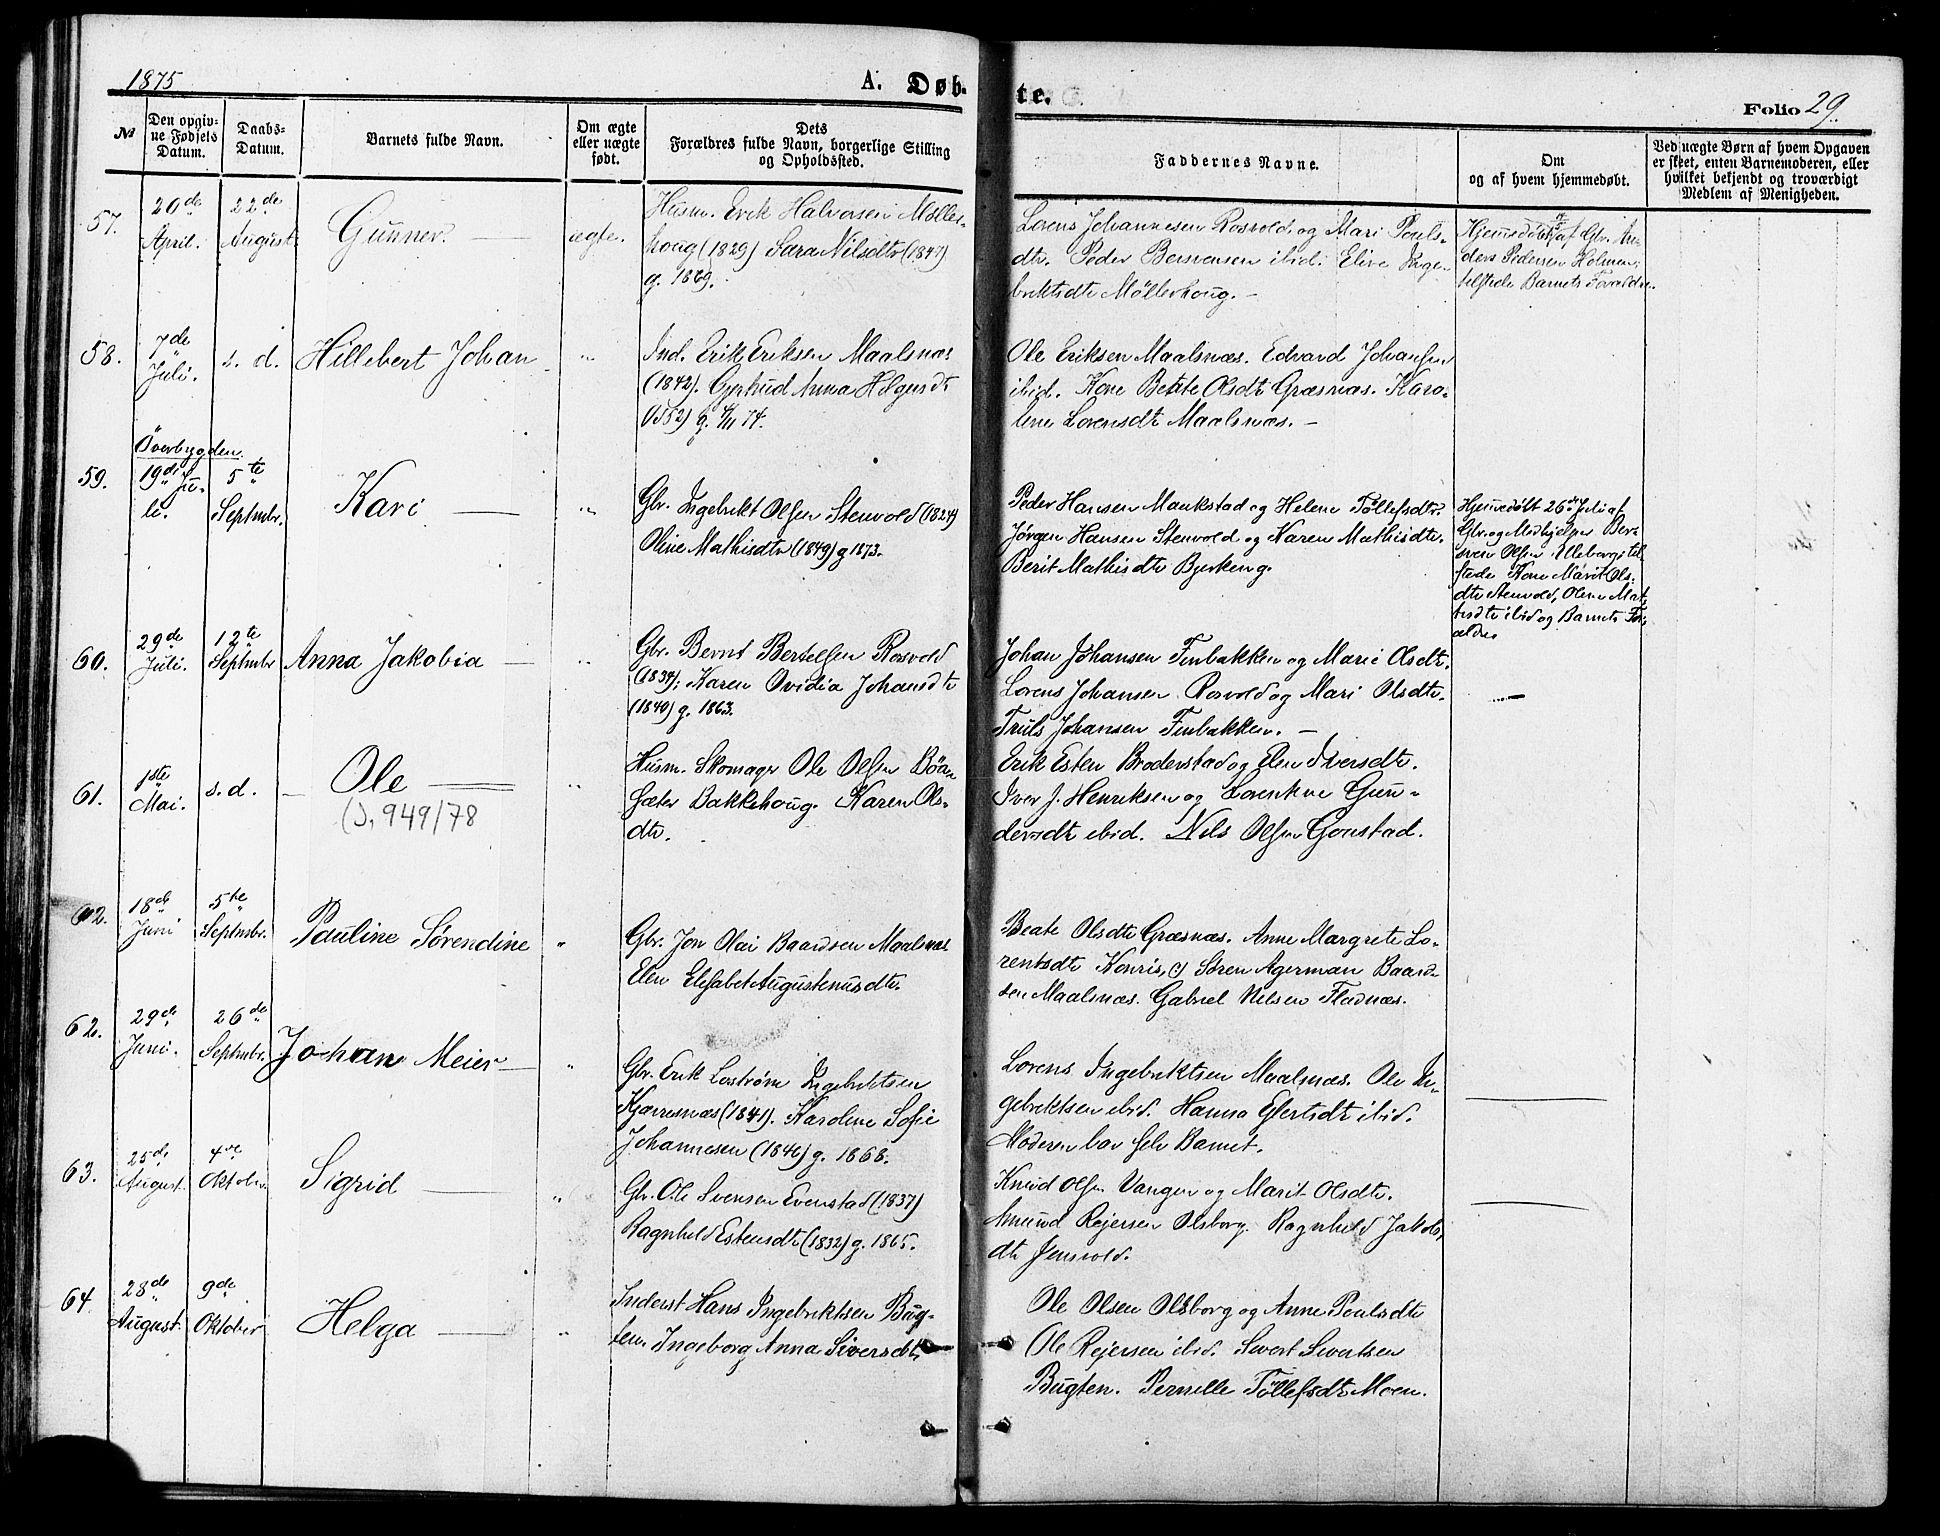 1875
A. Døb-
te.
Folio 29.
№
Den opgiv-
ne Fødsels
Datum.
Daabs-
Datum.
Barnets fulde Navn.
Om ægte
eller uægte
født.
Dets
Forældres fulde Navn, borgerlige Stilling
og Opholdssted.
Faddernes Navne.
Om
og af hvem hjemmedøbt.
Ved uægte Børn af hvem Opgaven
er skeet, enten Barnemoderen, eller
hvilket bekjendt og troværdigt
Medlem af Menigheden.
57.
20de
April.
22de
August
Gunner.
ægte.
Husm. Erik Halvorsen Møller-
houg (1829) Sara Nilsdtr (1847)
g. 1869.
Lorens Johannesen Rosvold og Mari Pouls-
dtr. Peder Bersvensen ibid. Elive Inge-
briktsdtr Møllerhoug. –
Hjemmedøbt af Gbr. An-
ders Pedersen Holmen;
tilstede Barnets Forældre.
58.
7de
Juli.
s. d.
Hillebert Johan
"
Ind. Erik Eriksen Maalsnæs
(1842). Gjertrud Anna Helgesdtr
(1852) g. 4/11 74.
Ole Eriksen Maalsnæs. Edvard Johansen
ibid. Kone Beate Olsdtr Græsnæs. Karo-
line Lorensdtr Maalsnæs. –
Overbygden
59.
19de Ju-
li.
5te
Septmbr.
Kari
"
Gbr. Ingebrikt Olsen Stenvold (1824)
Oline Mathisdtr (1849) g 1873.
Peder Hansen Maukstad og Helene Tollefsdtr.
Jørgen Hansen Stenvold og Karen Mathisdtr.
Berit Mathisdtr Bjerkeng.
Hjemmedøbt 26de Juli af
Gbr. og Medhjelper Ber-
sven Olsen Ulleborg; til
stede Kone Marit Ols-
dtr Stenvold, Olene Mat-
hisdtr ibid og Barnets For-
ældre
60.
29de
Juli.
12te
Septmbr
Anna Jakobia
"
Gbr. Bernt Bertelsen Rosvold
(1834); Karen Ovidia Johansdtr
(1840) g. 1863.
Johan Johansen Finbakken og Marie Olsdtr.
Lorens Johansen Rosvold og Mari Olsdtr.
Truls Johansen Finbakken. –
61.
1ste
Mai.
s. d.
Ole
(J. 949/78
"
Husm. Skomager Ole Olsen Böa-
sæter Bakkehoug. Karen Ols-
dtr.
Erik Esten Broderstad og Elen Iversdtr.
Iver J. Henriksen og Lorentine Gun-
dersdtr ibid. Nils Olsen Gonstad.
62.
18de
Juni
5te
Septmbr.
Pauline Sørendine
"
Gbr. Jon Olai Baardsen Maalsnæs
Elen Elisabet Augustinusdtr.
Beate Olsdtr Græsnæs. Anne Margrete Lo-
rentsdtr Konris, Søren Agerman Baard-
sen Maalsnæs. Gabriel Nilsen Fladnæs.
62.
29de
Juni.
26de
Septmbr.
Johan Meier
"
Gbr. Erik Lostrøm Ingebriktsen
Kjærresnæs (1841). Karoline Sofie
Johannesen (1846) g. 1868.
Lorens Ingebriktsen Maalsnæs. Ole In-
gebriktsen ibid. Hanna Efertsdtr ibid.
Moderen bar selv Barnet.
63.
25de
August.
4de
Oktober
Sigrid
"
Gbr. Ole Svensen Evenstad (1837)
Ragnhild Estensdtr (1832) g. 1865.
Knud Olsen Vangen og Marit Olsdtr.
Amund Rejersen Olsborg. Ragnhild Jakobs-
dtr Jensvold.
64.
28de
August.
9de
Oktober
Helga
"
Inderst Hans Ingebriktsen Bug-
ten Ingeborg Anna Siversdtr.
Ole Olsen Olsborg og Anne Poulsdtr
Ole Rejersen ibid. Sivert Sivertsen
Bugten. Pernille Tollefsdtr Moen.